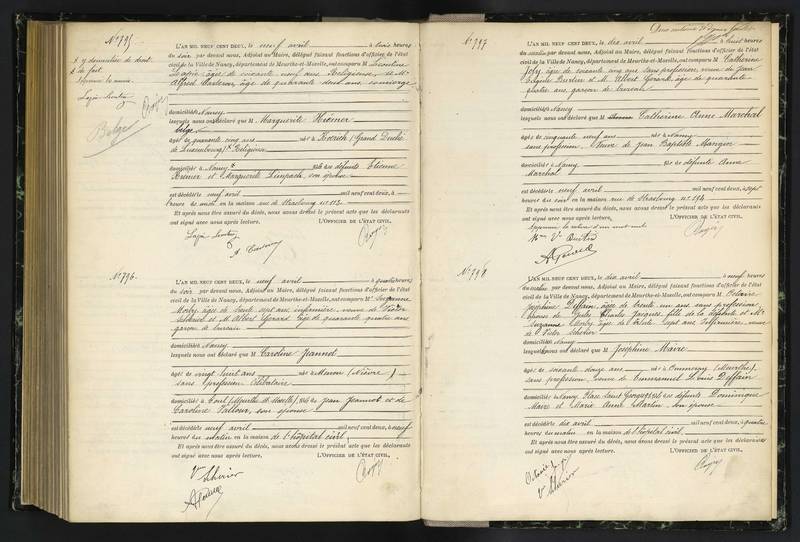 N° 795
Belge
L'AN MIL NEUF CENT DEUX, le neuf avril à trois heures
du soir par devant nous, Adjoint au Maire, délégué faisant fonctions d'officier de l'état
civil de la Ville de Nancy, département de Meurthe-et-Moselle, ont comparu M
âgée de soixante neuf ans Religieuse, et M
Alfred âgé de quarante deux ans, concierge
domiciliés Nancy
lesquels nous ont déclaré que M Marguerite Hiemer
belge
âgée de quarante cinq ans née à Koerich (Grand Duché
de Luxembourg) Religieuse
domiciliée à Nancy fille des défunts Etienne
Hiemer et Marguerite Limpach, son épouse
est décédée neuf avril mil neuf cent deux, à
heure du matin en la maison rue de Strasbourg n°
Et après nous être assuré du décès, nous avons dressé le présent acte que les déclarants
ont signé avec nous après lecture. L'OFFICIER DE L'ÉTAT CIVIL,
N° 796
L'AN MIL NEUF CENT DEUX, le neuf avril à quatre heures
du soir par devant nous, Adjoint au Maire, délégué faisant fonctions d'officier de l'état
civil de la Ville de Nancy, département de Meurthe-et-Moselle, ont comparu M Suzanne
âgée de trente sept ans, infirmière, veuve de Victor
et M Albert Gérard âgé de quarante quatre ans
garçon de bureau
domiciliés Nancy
lesquels nous ont déclaré que M Caroline Jeannot
âgée de vingt huit ans née à (Nièvre)
sans profession célibataire
domiciliée à Toul (Meurthe et Moselle) fille de Jean Jeannot et de
Caroline son épouse
est décédée neuf avril mil neuf cent deux, à neuf
heures du matin en la maison de l'hôpital civil
Et après nous être assuré du décès, nous avons dressé le présent acte que les déclarants
ont signé avec nous après lecture. L'OFFICIER DE L'ÉTAT CIVIL,
N° 797
L'AN MIL NEUF CENT DEUX, le dix avril à huit heures
du matin par devant nous, Adjoint au Maire, délégué faisant fonctions d'officier de l'état
civil de la Ville de Nancy, département de Meurthe-et-Moselle, ont comparu M Catherine
âgée de soixante cinq ans sans profession, veuve de Jean
et M Albert Gérard, âgé de quarante
quatre ans garçon de bureau
domiciliés Nancy
lesquels nous ont déclaré que M Catherine Anne Marchal
âgée de cinquante neuf ans née à Nancy
sans profession, Veuve de Jean Baptiste Mangin
domiciliée à Nancy fille de défunte Anne
Marchal
est décédée neuf avril mil neuf cent deux, à sept
heures du soir en la maison rue de Strasbourg n°
Et après nous être assuré du décès, nous avons dressé le présent acte que les déclarants
ont signé avec nous après lecture. L'OFFICIER DE L'ÉTAT CIVIL,
N° 798
L'AN MIL NEUF CENT DEUX, le dix avril à neuf heures
du matin par devant nous, Adjoint au Maire, délégué faisant fonctions d'officier de l'état
civil de la Ville de Nancy, département de Meurthe-et-Moselle, ont comparu M Octavie
Joséphine Deffain, âgée de trente un ans sans profession
épouse de Jules Charles Jacques, fille de la défunte et M
Suzanne âgée de trente sept ans infirmière, veuve
de Victor
domiciliés Nancy
lesquels nous ont déclaré que M Joséphine Maire
âgée de soixante douze ans née à (Meurthe)
sans profession, veuve de Emmanuel Louis Deffain
domiciliée à Nancy Place Saint Georges fille des défunts Dominique
Maire et Marie Anne Martin son épouse
est décédée dix avril mil neuf cent deux, à quatre
heures du matin en la maison de l'hôpital civil
Et après nous être assuré du décès, nous avons dressé le présent acte que les déclarants
ont signé avec nous après lecture. L'OFFICIER DE L'ÉTAT CIVIL,